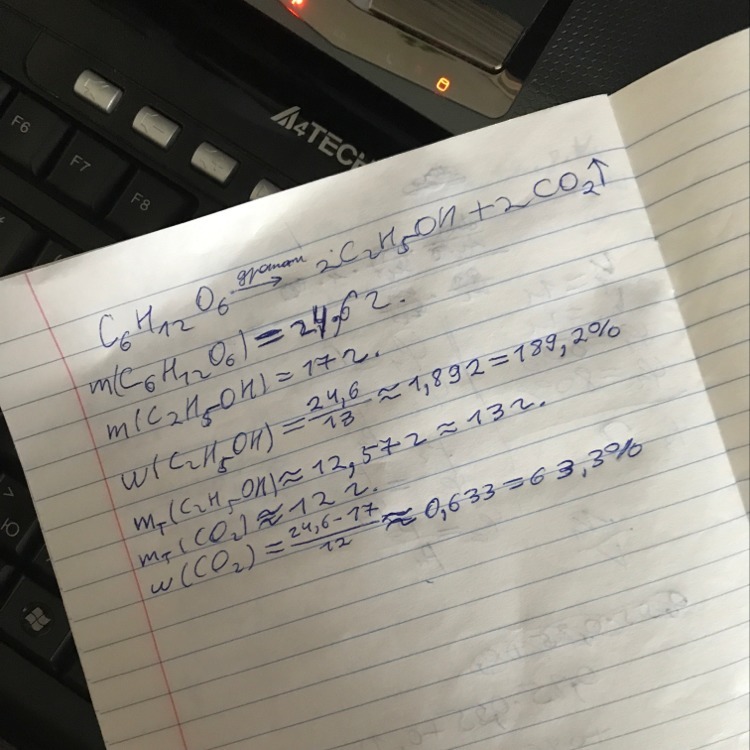 A4TECH
F6
F7
F8
Ю
C₆H₁₂O₆ →(дрожжи) 2C₂H₅OH + 2CO₂↑
m(C₆H₁₂O₆) = 24,6 г.
m(C₂H₅OH) = 17 г.
w(C₂H₅OH) = 24,6/13 ≈ 1,892 = 189,2%
mт(C₂H₅OH) ≈ 12,57 г ≈ 13 г.
mт(CO₂) ≈ 12 г.
w(CO₂) = 24,6-17/12 ≈ 0,633 = 63,3%